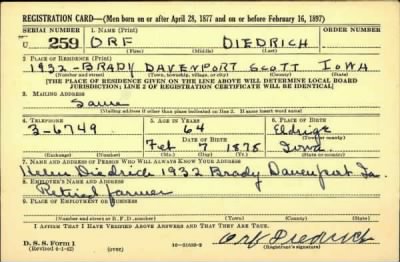 REGISTRATION CARD—(Men born on or after April 28, 1877 and on or before February 16, 1897)
SERIAL NUMBER 1. NAME (Print) ORDER NUMBER
U 259 ORF DIEDRICH
(First) (Middle) (Last)
2. PLACE OF RESIDENCE (Print)
1932 - BRADY DAVENPORT SCOTT IOWA
(Number and street) (Town, township, village, or city) (County) (State)
[THE PLACE OF RESIDENCE GIVEN ON THE LINE ABOVE WILL DETERMINE LOCAL BOARD
JURISDICTION; LINE 2 OF REGISTRATION CERTIFICATE WILL BE IDENTICAL]
3. MAILING ADDRESS
Same
[Mailing address if other than place indicated on line 2. If same insert word same]
4. TELEPHONE 5. AGE IN YEARS 6. PLACE OF BIRTH
3-6749 64 Eldrige
DATE OF BIRTH (Town or county)
Feb 7 1878 Iowa
(Exchange) (Number) (Mo.) (Day) (Yr.) (State or country)
7. NAME AND ADDRESS OF PERSON WHO WILL ALWAYS KNOW YOUR ADDRESS
Helen Diedrich 1932 Brady Davenport Ia.
8. EMPLOYER'S NAME AND ADDRESS
Retired farmer
9. PLACE OF EMPLOYMENT OR BUSINESS
(Number and street or R. F. D. number) (Town) (County) (State)
I AFFIRM THAT I HAVE VERIFIED ABOVE ANSWERS AND THAT THEY ARE TRUE.
D. S. S. Form 1
(Revised 4-1-42) (over) Orf Diedrich
(Registrant's signature)